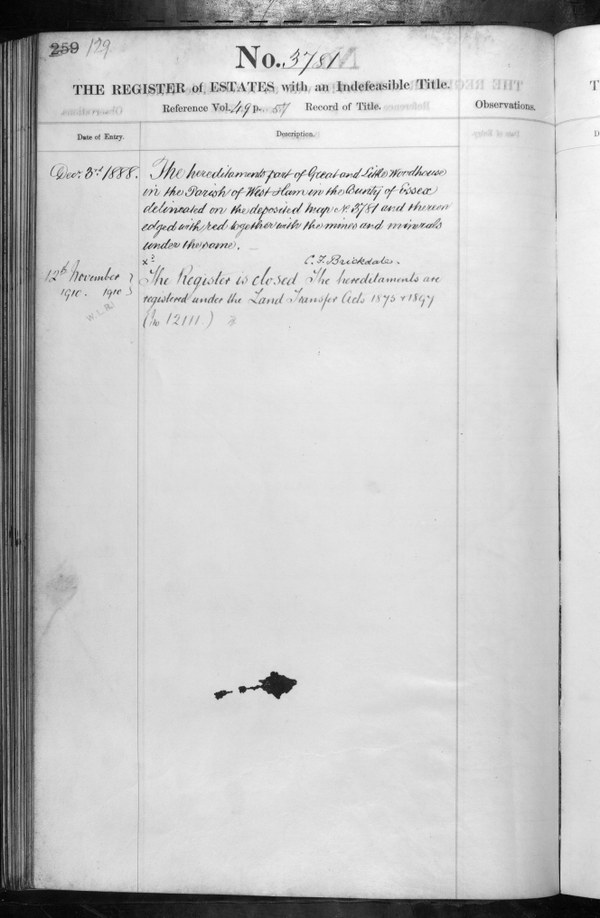 259 129
No. 3781
THE REGISTER of ESTATES with an Indefeasible Title.
Reference Vol. 49 p. 57 Record of Title.
Observations.
Date of Entry.
Description.
Decr. 3rd 1888.
The hereditaments part of Great and Little Woodhouse
in the Parish of West Ham in the County of Essex
delineated on the deposited Map No. 3781 and thereon
edged with red together with the mines and minerals
under the same.
C. F. Brickdale.
12th November
1910. 1910
The Register is closed The hereditaments are
registered under the Land Transfer Acts 1875 & 1897
(No 12111.)